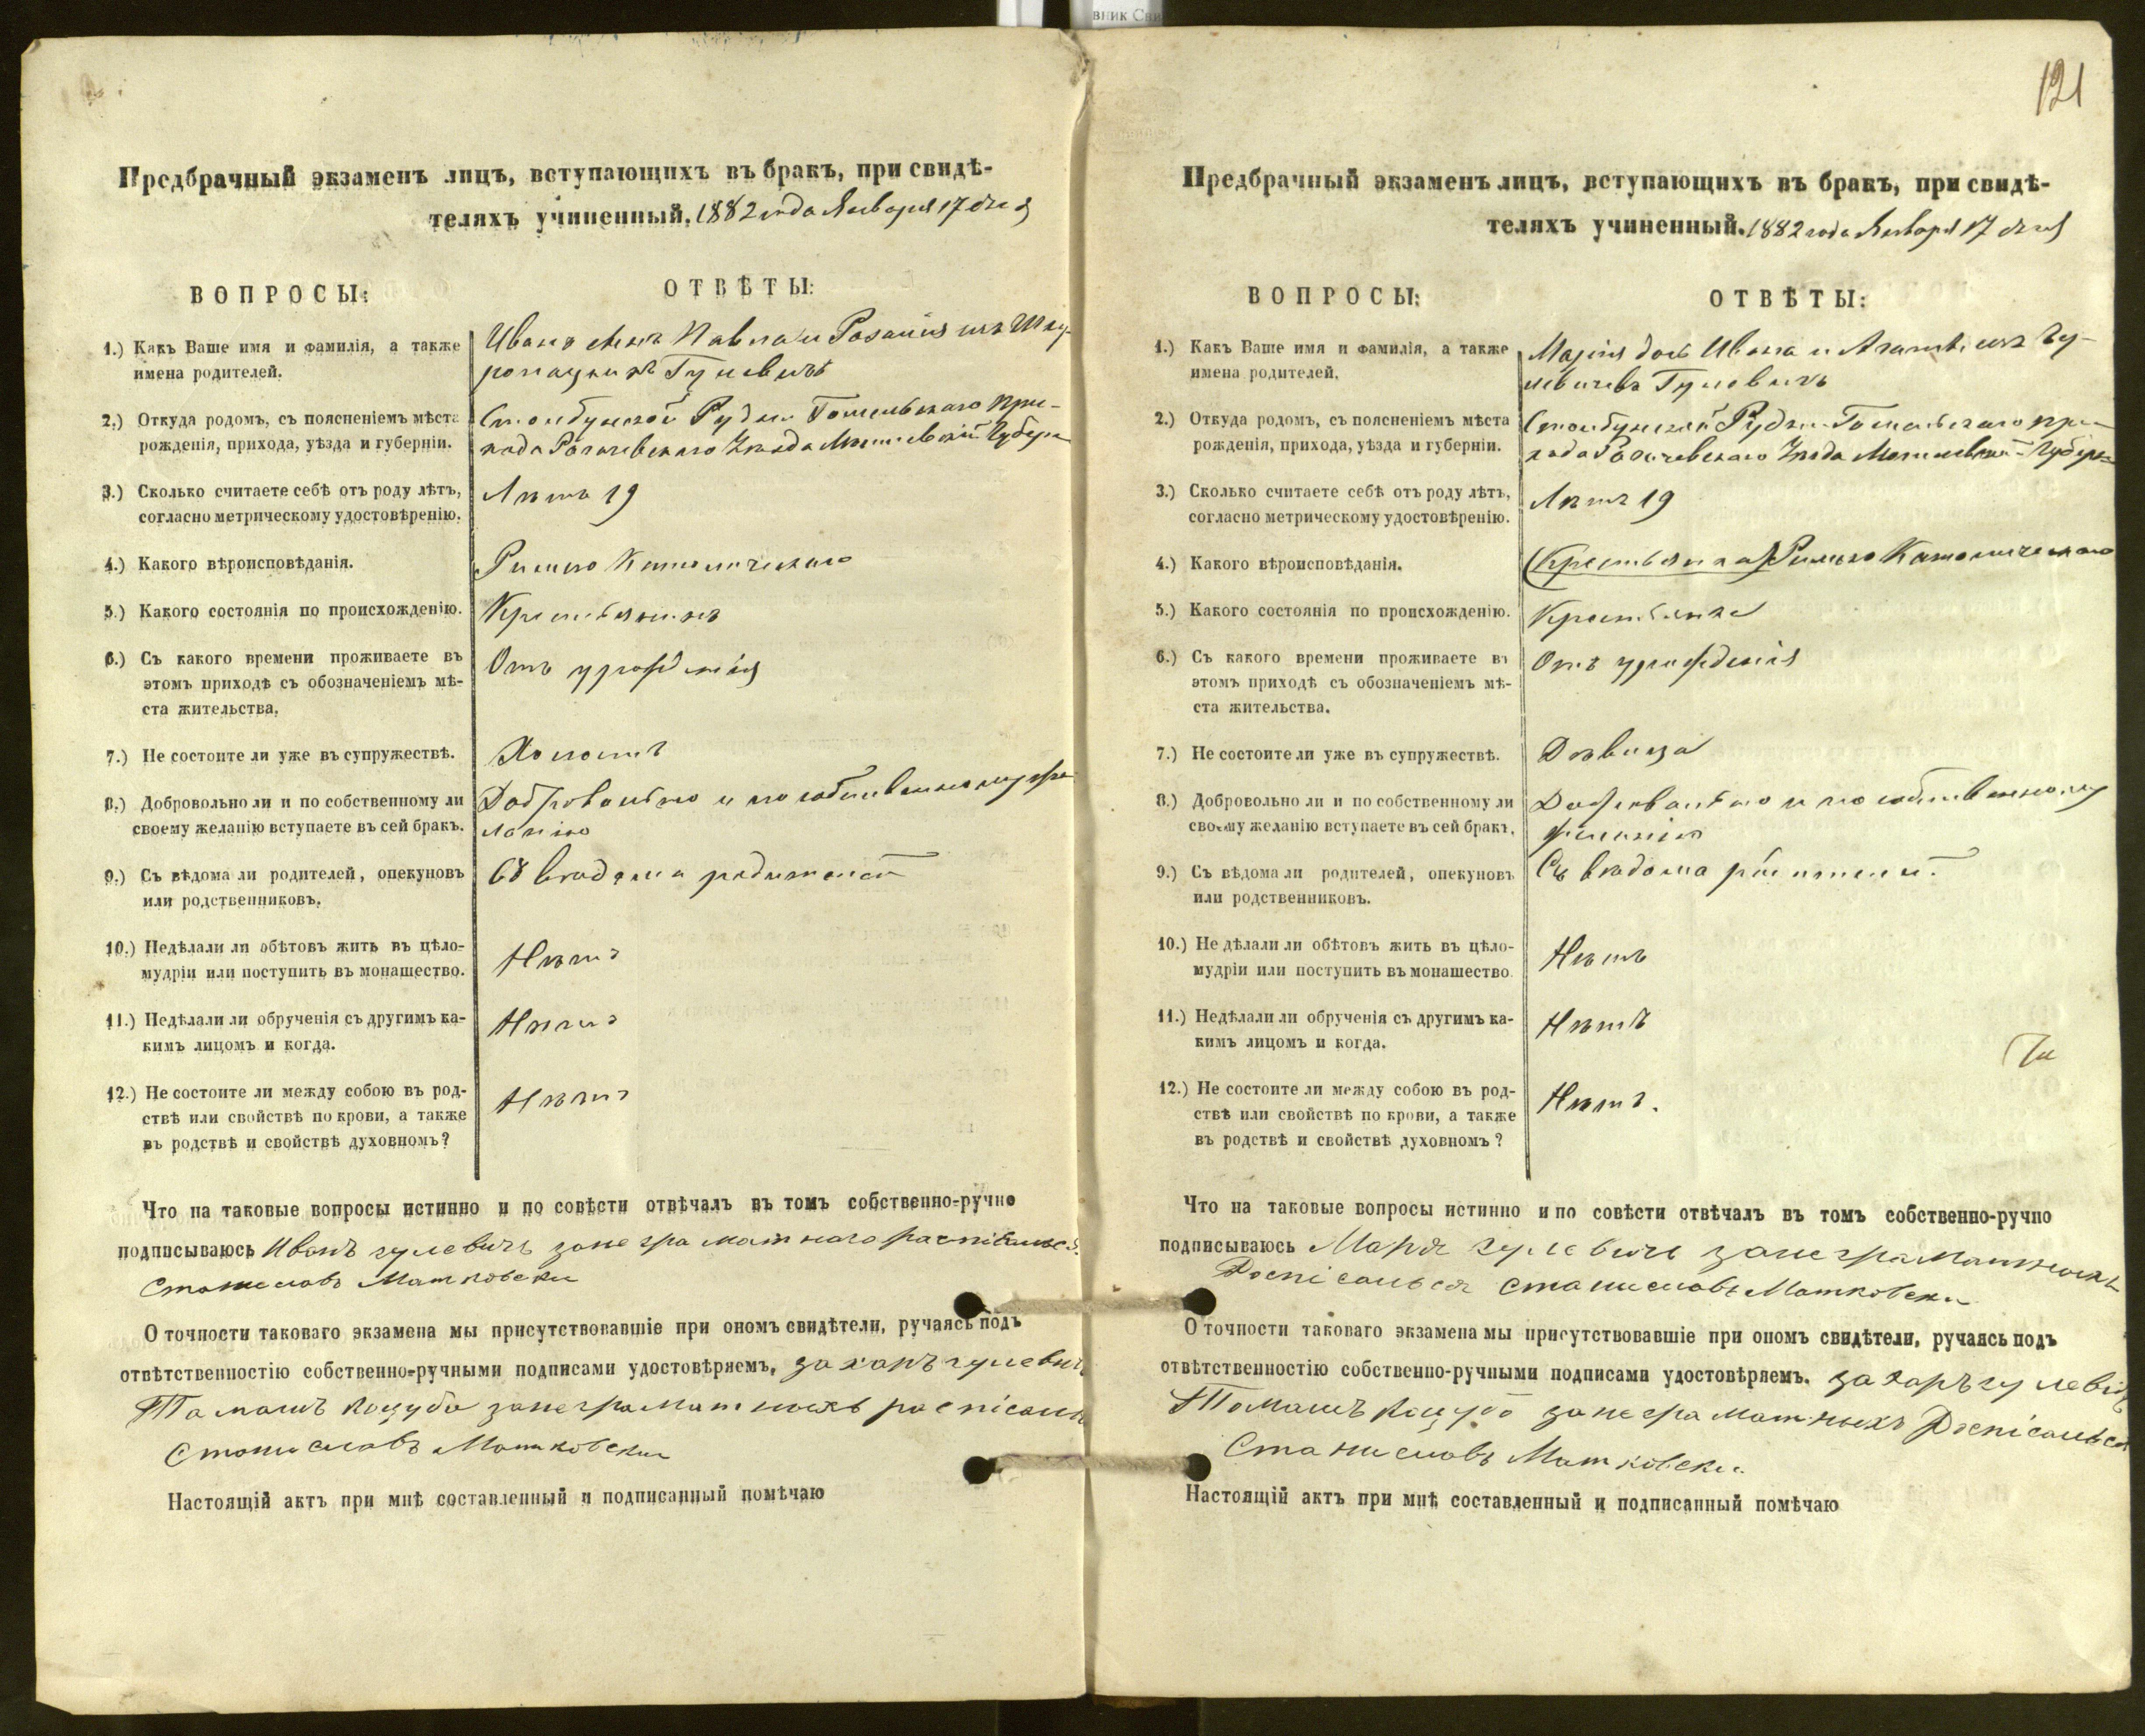 вник Сви
121
Предбрачный экзаменъ лицъ, вступающихъ въ бракъ, при свидѣ-
теляхъ учиненный. 1882 года Января 17 дня
ВОПРОСЫ:
ОТВѢТЫ:
1.) Какъ Ваше имя и фамилія, а также
имена родителей.
Иванъ сынъ Павла и Розаліи изъ
Гулевичъ
2.) Откуда родомъ, съ поясненіемъ мѣста
рожденія, прихода, уѣзда и губерніи.
Столбунской Рудни Гомельскаго при-
хода Рогачевскаго Уѣзда Могилевской Губерн
3.) Сколько считаете себѣ отъ роду лѣтъ,
согласно метрическому удостовѣренію.
Лѣтъ 19
4.) Какого вѣроисповѣданія.
Римско Католическаго
5.) Какого состоянія по происхожденію.
Крестьянинъ
6.) Съ какого времени проживаете въ
этомъ приходѣ съ обозначеніемъ мѣ-
ста жительства.
Отъ урожденія
7.) Не состоите ли уже въ супружествѣ.
Холостъ
8.) Добровольно ли и по собственному ли
своему желанію вступаете въ сей бракъ.
Добровольно и по собственному же
ланію
9.) Съ вѣдома ли родителей, опекуновъ
или родственниковъ.
Съ вѣдома родителей
10.) Недѣлали ли обѣтовъ жить въ цѣло-
мудріи или поступить въ монашество.
Нѣтъ
11.) Недѣлали ли обрученія съ другимъ ка-
кимъ лицомъ и когда.
Нѣтъ
12.) Не состоите ли между собою въ род-
ствѣ или свойствѣ по крови, а также
въ родствѣ и свойствѣ духовномъ?
Нѣтъ
Что на таковые вопросы истинно и по совѣсти отвѣчалъ въ томъ собственно-ручно
подписываюсь Иванъ гулевичъ занеграматнаго
Станиславъ Матковски
О точности таковаго экзамена мы присутствовавшіе при ономъ свидѣтели, ручаясь подъ
отвѣтственностію собственно-ручными подписами удостовѣряемъ. захаръ гулевич
Тамашъ Коцуба занеграматныхъ
Станиславъ Матковски
Настоящій актъ при мнѣ составленный и подписанный помѣчаю
Предбрачный экзаменъ лицъ, вступающихъ въ бракъ, при свидѣ-
теляхъ учиненный. 1882 года Января 17 дня
ВОПРОСЫ:
ОТВѢТЫ:
1.) Какъ Ваше имя и фамилія, а также
имена родителей.
Марія дочь Ивана и Агаты изъ Гу-
левичевъ Гулевичъ
2.) Откуда родомъ, съ поясненіемъ мѣста
рожденія, прихода, уѣзда и губерніи.
Столбунской Рудни Гомельскаго при-
хода Рогачевскаго Уѣзда Могилевской Губерн
3.) Сколько считаете себѣ отъ роду лѣтъ,
согласно метрическому удостовѣренію.
Лѣтъ 19
4.) Какого вѣроисповѣданія.
(Крестьянка) Римско Католическаго
5.) Какого состоянія по происхожденію.
Крестьянка
6.) Съ какого времени проживаете въ
этомъ приходѣ съ обозначеніемъ мѣ-
ста жительства.
Отъ урожденія
7.) Не состоите ли уже въ супружествѣ.
Дѣвица
8.) Добровольно ли и по собственному ли
своему желанію вступаете въ сей бракъ.
Добровольно и по собственному
желанію
9.) Съ вѣдома ли родителей, опекуновъ
или родственниковъ.
Съ вѣдома родителей.
10.) Не дѣлали ли обѣтовъ жить въ цѣло-
мудріи или поступить въ монашество
Нѣтъ
11.) Недѣлали ли обрученія съ другимъ ка-
кимъ лицомъ и когда.
Нѣтъ
12.) Не состоите ли между собою въ род-
ствѣ или свойствѣ по крови, а также
въ родствѣ и свойствѣ духовномъ?
Нѣтъ.
Что на таковые вопросы истинно и по совѣсти отвѣчалъ въ томъ собственно-ручно
подписываюсь Маря гулевичъ
Роспісалься Станиславъ Матковски
О точности таковаго экзамена мы присутствовавшіе при ономъ свидѣтели, ручаясь подъ
отвѣтственностію собственно-ручными подписами удостовѣряемъ. захаръ гулевіч
Томашъ Коцубо занеграматныхъ Роспісалься
Станиславъ Матковски
Настоящій актъ при мнѣ составленный и подписанный помѣчаю